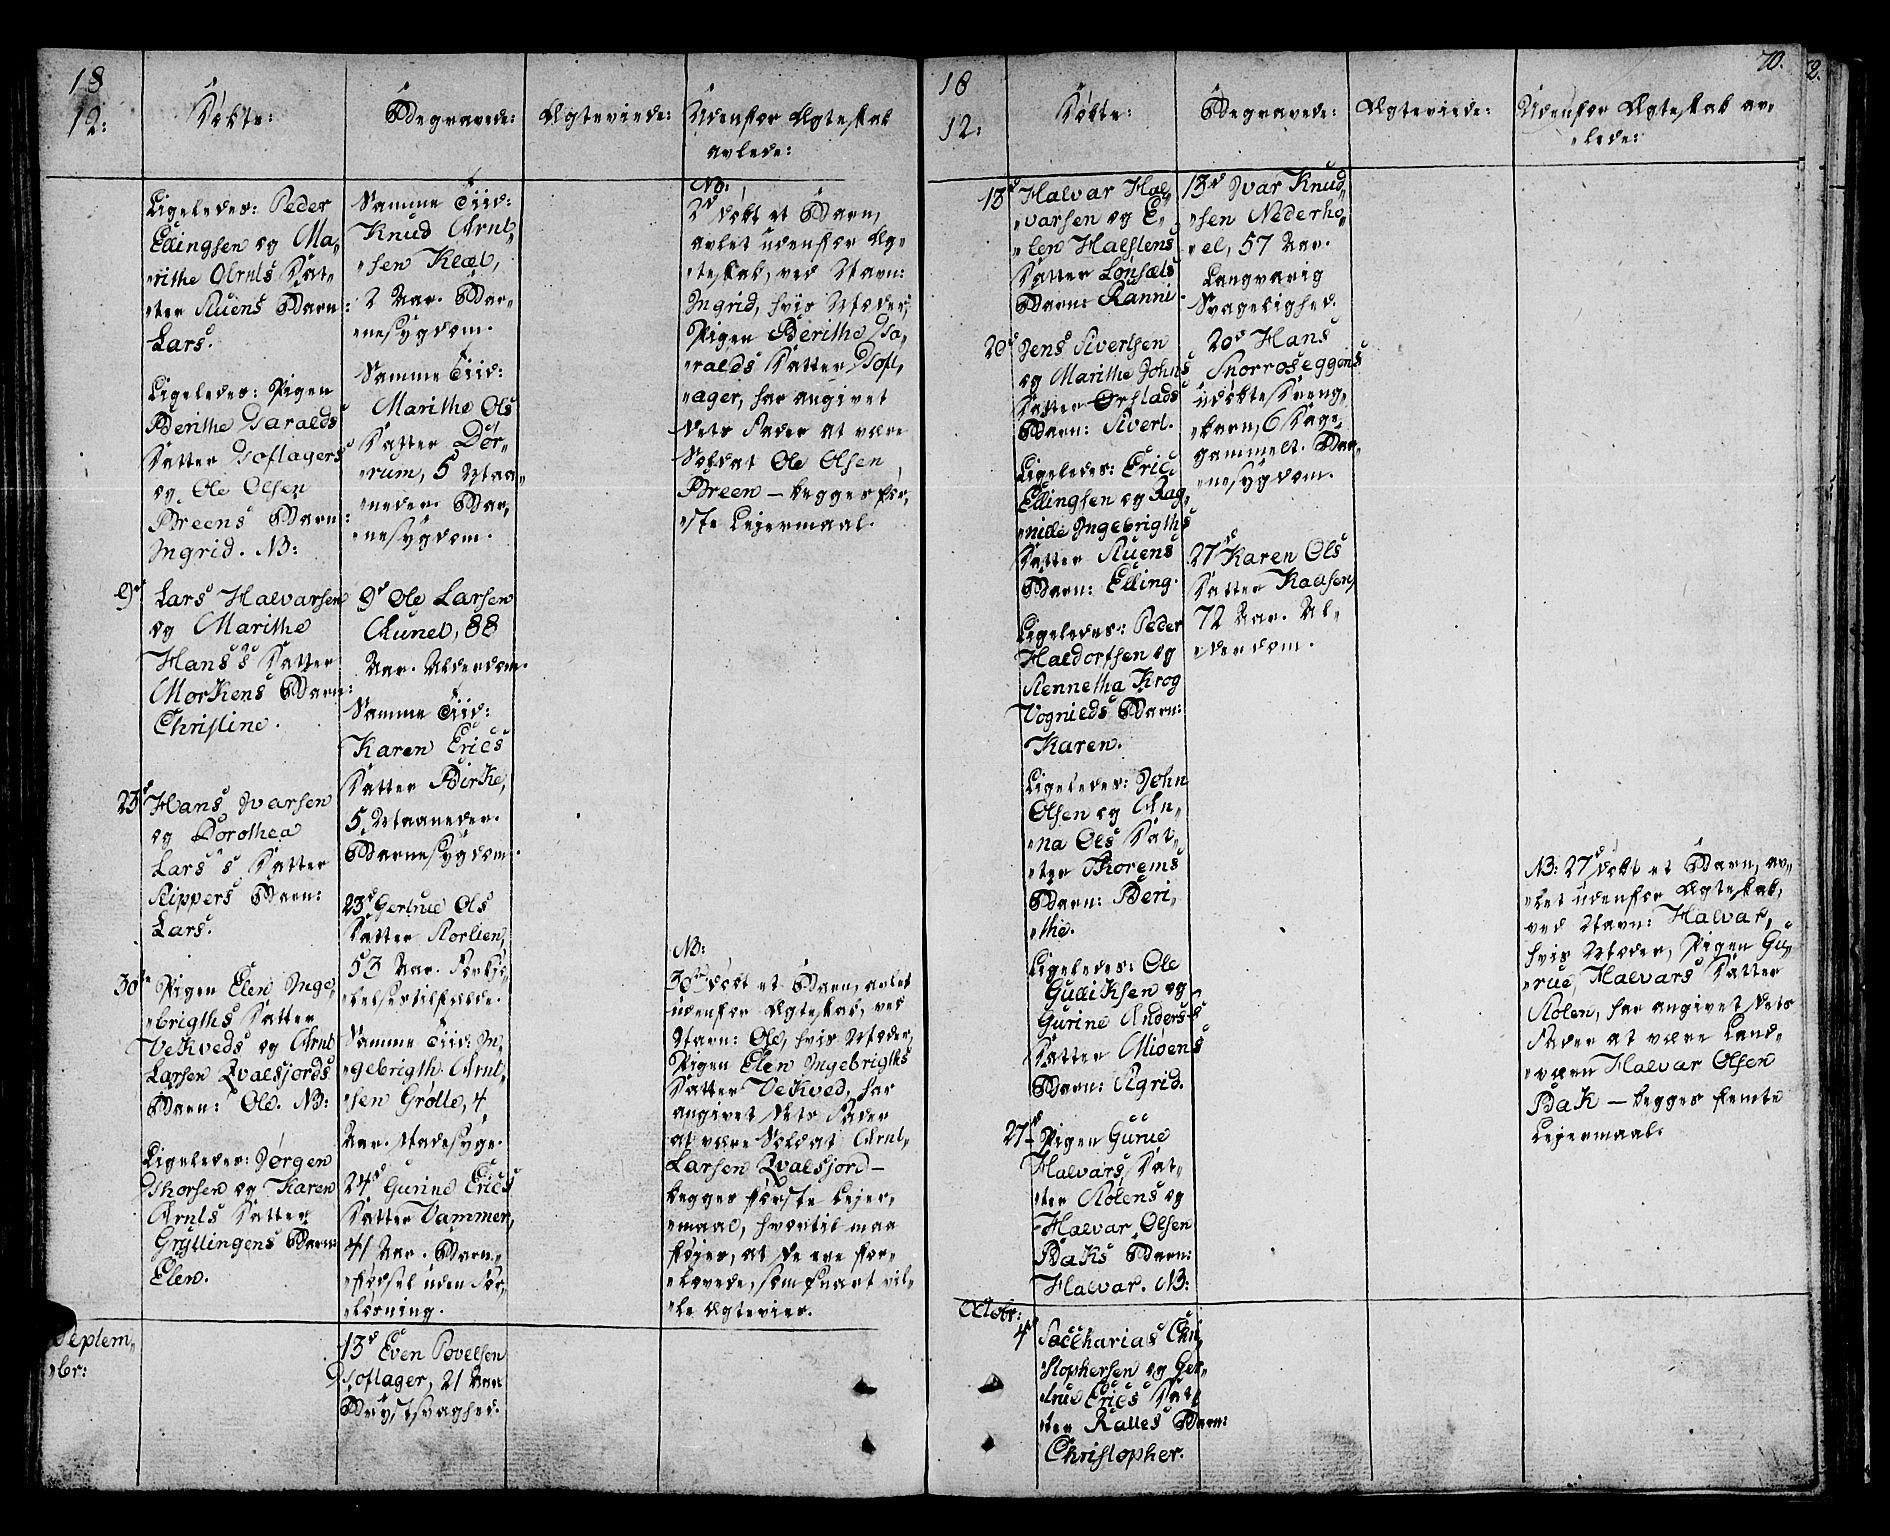 18
12:
Døbte:
Begravede:
Ægteviede:
Udenfor Ægteskab
avlede:
Ligeledes: Peder
Ellingsen og Ma„
„rithe Arnts Dat„
„ter Ruens Barn:
Lars.
Ligeledes: Pigen
Berithe Haralds
Datter Hoflagers
og Ole Olsen
Breens Barn:
Ingrid. NB:
9d Lars Halvarsen
og Marithe
Hans's Datter
Morkens Barn:
Christine.
23d Hans Ivarsen
og Dorothea
Lars's Datter
Rippers Barn:
Lars.
30te Pigen Elen Inge„
„brigths Datter
Vekveds og Arnt
Larsen Qvalsjords
Barn: Ole. NB:
Ligeledes: Jørgen
Thorsen og Karen
Arnts Datter
Gryllingens Barn:
Elen.
Septem„
„br:
Samme Tiid:
Knud Arnt„
„sen Klæt,
2 Aar. Bør„
„nesygdom.
Samme Tiid:
Marithe Ols
Datter Dør„
„rum, 5 Maa„
„neder. Bør„
„nesygdom.
9d Ole Larsen
Aunet, 88
Aar. Alderdom.
Samme Tiid:
Karen Erics
Datter Birke,
5 Maaneder.
Børnesygdom.
23d Gertrue Ols
Datter Rorlien,
53 Aar. Forkjø„
„lelsestilfælde.
Samme Tiid: In„
„gebrigth Arnt„
„sen Grølle, 4
Aar. Radesyge.
24d Gurine Erics
Datter Vammer,
41 Aar. Barn„
„fødsel uden For„
„løsning.
13d Even Povelsen
Hoflager, 21 Aar
Brystsvaghed.
NB:
2d døbt et Barn,
avlet udenfor Æg„
„teskab, ved Navn:
Ingrid, hvis Moder,
Pigen Berithe Ha„
„ralds Datter Hofl„
„ager, har angivet
dets Fader at være
Soldat Ole Olsen
Breen — begges før„
„ste Lejermaal.
NB:
30te døbt et Barn, avlet
udenfor Ægteskab, ved
Navn: Ole, hvis Moder,
Pigen Elen Ingebrigths
Datter Vekved, har
angivet dets Fader
at være Soldat Arnt
Larsen Qvalsjord —
begges første Lejer„
„maal, hvortil maa
føjes, at de ere for„
„lovede, som snart vil„
„le Ægtevies.
70.
18
12:
Døbte:
Begravede:
Ægteviede:
Udenfor Ægteskab av„
„lede:
13d Halvar Hal„
„varsen og E„
„len Halstens
Datter Lonsæts
Barn: Ranni.
20d Jens Sivertsen
og Marithe Johns
Datter Ørstads
Barn: Sivert.
Ligeledes: Eric
Ellingsen og Rag„
„nille Ingebrigths
Datter Ruens
Barn: Elling.
Ligeledes: Peder
Haldorsen og
Rennetha Krog
Vognilds Barn:
Karen.
Ligeledes: John
Olsen og An„
„na Ols Dat„
„ter Thorems
Barn: Beri„
„the.
Ligeledes: Ole
Gulliksen og
Gurine Anders's
Datter Mioens
Barn: Sigrid.
27d Pigen Gurue
Halvars Dat„
„ter Rolens og
Halvar Olsen
Baks Barn:
Halvar. NB:
Octobr:
4d Saccharias Chri„
„stophersen og Ger„
„true Erics Dat„
„ter Ralles Barn:
Christopher.
13d Ivar Knud„
„sen Nederho„
„el, 57 Aar.
Langvarig
Svagelighed.
20d Hans
Snorroseggens
udøbte Dreng„
„barn, 6 Dage
gammelt. Bør„
„nesygdom.
27d Karen Ols
Datter Kaasen,
72 Aar. Al„
„derdom.
NB: 27d døbt et Barn, av„
„let udenfor Ægteskab,
ved Navn: Halvar,
hvis Moder, Pigen Gu„
„rue Halvars Datter
Rolen, har angivet dets
Fader at være Land„
„værn Halvar Olsen
Bak — begges femte
Lejermaal.